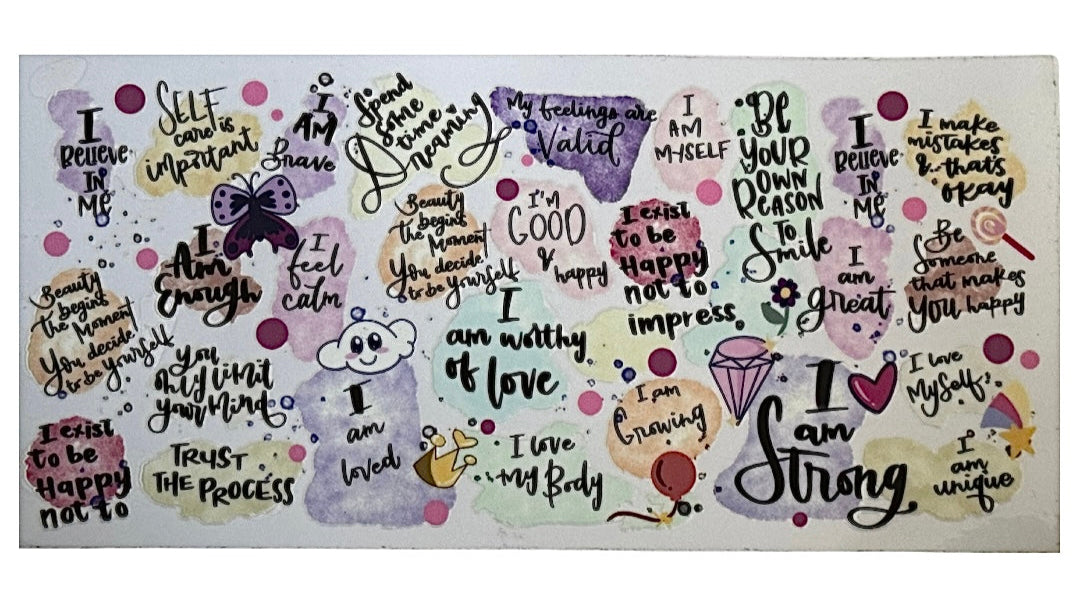 I
Believe
IN
ME
SELF
care is
important
I
AM
Brave
Spend
some
time
Dreaming
My feelings are
Valid
I
AM
MYSELF
BE
YOUR
OWN
REASON
To
Smile
I
Believe
IN
ME
I make
mistakes
& that's
okay
I
Am
Enough
I
feel
calm
Beauty
begins
the Moment
You decide
to be yourself
I'M
GOOD
&
happy
I exist
to be
Happy
not to
impress
I
am
great
Be
Someone
that makes
YOU happy
Beauty
begins
the Moment
You decide
to be yourself
You
only limit
your Mind
I
am worthy
of love
I love
MySelf
I exist
to be
Happy
not to
TRUST
THE PROCESS
I
am
loved
I love
my Body
I am
Growing
I
am
Strong
I
am
unique